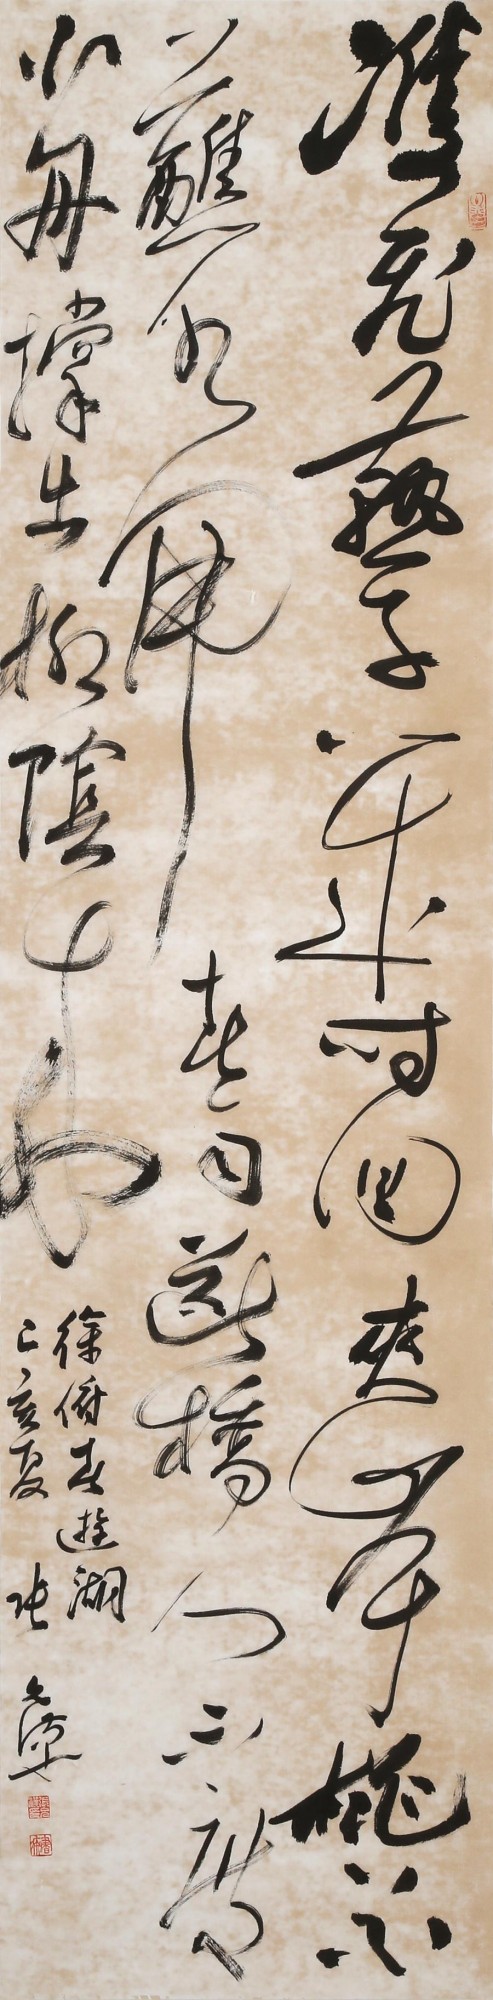 雙飛燕子幾時回夾岸桃花
蘸水開春雨斷橋人不度
小舟撐出柳陰來
徐俯春遊湖
己亥夏 張